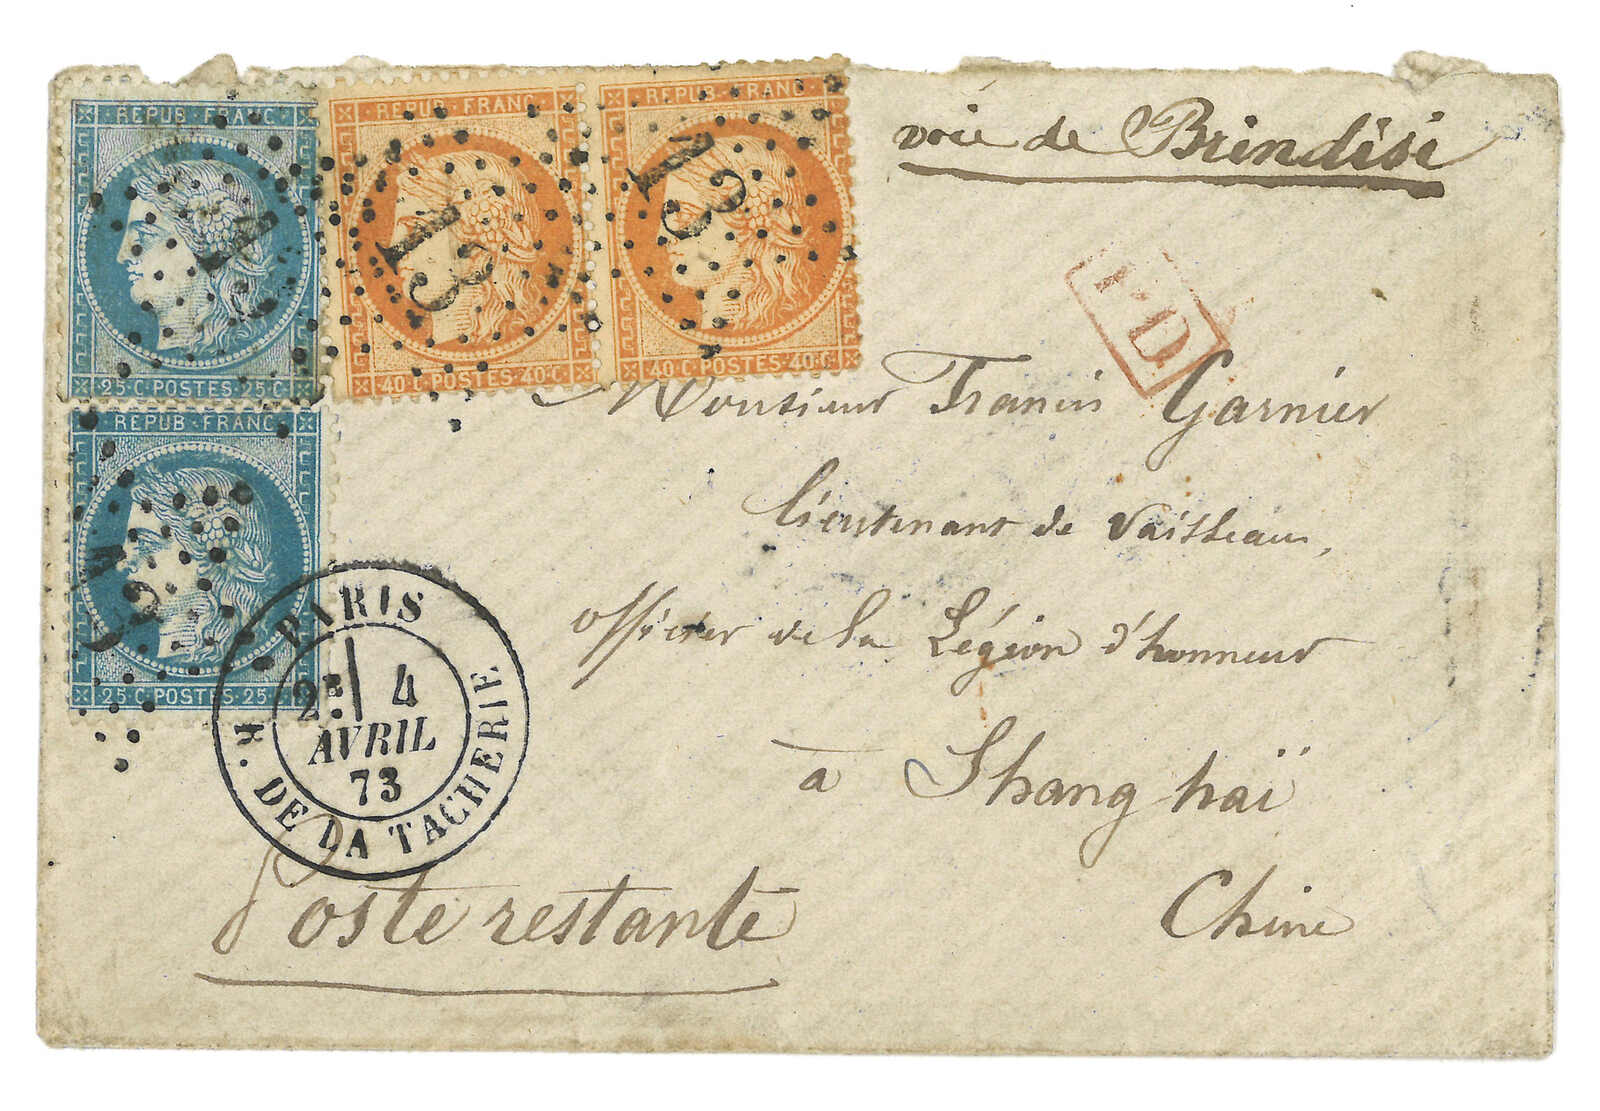 voie de Brindisi
REPUB FRANC
25 C POSTES 25 C
REPUB FRANC
40 C POSTES 40 C
REPUB FRANC
40 C POSTES 40 C
13
13
REPUB FRANC
25 C POSTES 25
PD
Monsieur Francis Garnier
lieutenant de Vaisseau,
officier de la Légion d'honneur
à Shang haï
Chine
PARIS
2E 4
AVRIL
73
R. DE LA TACHERIE
Poste restante